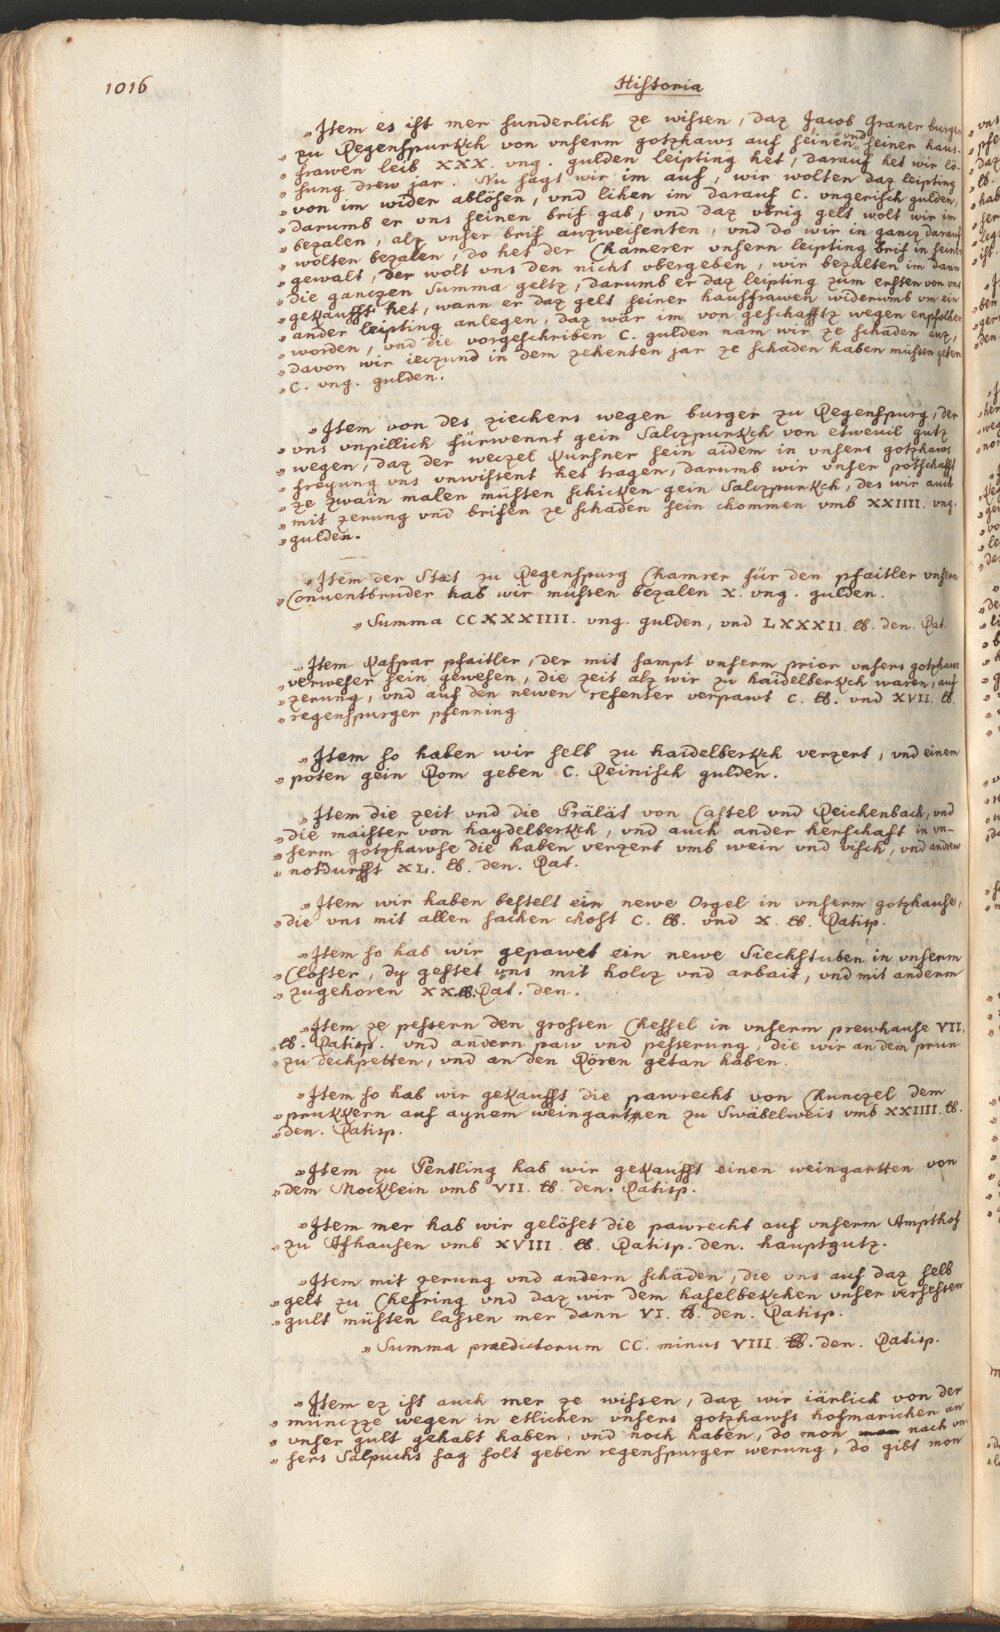 1016
Historia
"Item es ist mer sunderlich ze wissen, daz Jacob Graner burger
" zu Regenspurkch von unserm gotzhaws auf seinen und seiner haus-
" frawen leib XXX. ung. gulden leipting het, darauf het wir lö-
" sung drew jar. Nu sagt wir im auf, wir wolten daz leipting
" von im wider ablösen, und lihen im darauf C. ungerisch gulden,
" darumb er uns seinen brif gab, und daz ubrig gelt wolt wir im
" bezalen, alz unser brif auzweisenten, und do wir in gancz darauf
" wolten bezalen, do het der Chamerer unsern leipting brif in seiner
" gewalt, der wolt uns den nicht ubergeben, wir bezalten im dann
" die ganczen Summa geltz, darumb er daz leipting zum ersten von uns
" gekaufft het, wann er daz gelt seiner hausfrawen widerumb um ein
" ander leipting anlegen, daz wär im von geschafftz wegen enpfolhen
" worden, und die vorgeschriben C. gulden nam wir ze schaden auz,
" davon wir ieczund in dem zehenten jar ze schaden haben müssen geben
" C. ung. gulden.
"Item von des ziechens wegen burger zu Regenspurg, der
" uns unpillich fürwennt gein Salczpurkch von etwevil gutz
" wegen, daz der weczel Kursner sein aidem in unsers gotzhaws
" freyung uns unwissent het tragen, darumb wir unser potschafft
" ze zwain malen müsten schicken gein Salczpurkch, des wir auch
" mit zerung und brifen ze schaden sein chommen umb XXIIII. ung.
" gulden.
"Item der Stat zu Regenspurg Chamrer für den pfaitler unsern
" Conventbruder hab wir müssen bezalen X. ung. gulden.
" Summa CCXXXIIII. ung. gulden, und LXXXII. lb. den. Rat.
"Item Kaspar pfaitler, der mit sampt unserm prior unsers gotzhaws
" verweser sein gewesen, die zeit alz wir zu haidelberkch waren, auf
" zerung, und auf den newen refenter verpawt C. lb. und XVII. lb.
" regenspurger pfenning
"Item so haben wir selb zu haidelberkch verzert, und einem
" poten gein Rom geben C. Reinisch gulden.
"Item die zeit und die Prälät von Castel und Reichenbach, und
" die maister von haydelberkch, und auch ander herschaft in un-
" serm gotzhawse die haben verzert umb wein und visch, und andrew
" notdurfft XL. lb. den. Rat.
"Item wir haben bestelt ein newe Orgel in unserm gotzhause,
" die uns mit allen sachen chost C. lb. und X. lb. Ratisp.
"Item so hab wir gepawet ein newe Siechstuben in unserm
" Closter, dy gestet uns mit holcz und arbait, und mit anderm
" zugehoren XX lb. Rat. den.
"Item ze pessern den grossen Chessel in unserm prewhause VII.
" lb. Ratisp. und andern paw und pesserung, die wir an dem prun
" zu dechpetten, und an den Rören getan haben.
"Item so hab wir gekaufft die pawrecht von Chunczel dem
" prukkern auf aynem weingartten zu Swäbelweis umb XXIIII. lb.
" den. Ratisp.
"Item zu Pentling hab wir gekaufft einen weingartten von
" dem Mocklein umb VII. lb. den. Ratisp.
"Item mer hab wir gelöset die pawrecht auf unserm Ampthof
" zu Ashausen umb XVIII. lb. Ratisp. den. hauptgutz.
"Item mit zerung und andern schäden, die uns auf daz selb
" gelt zu Chefring und daz wir dem haselbekchen unser versessen
" gult müsten lassen mer dann VI. lb. den. Ratisp.
" Summa praedictorum CC. minus VIII. lb. den. Ratisp.
"Item ez ist auch mer ze wissen, daz wir iärlich von der
" müncze wegen in etlichen unsers gotzhawss hofmarichen an
" unser gult gehabt haben, und noch haben, do mon nach un-
" sers Salpuchs sag solt geben regenspurger werung, do gibt mon